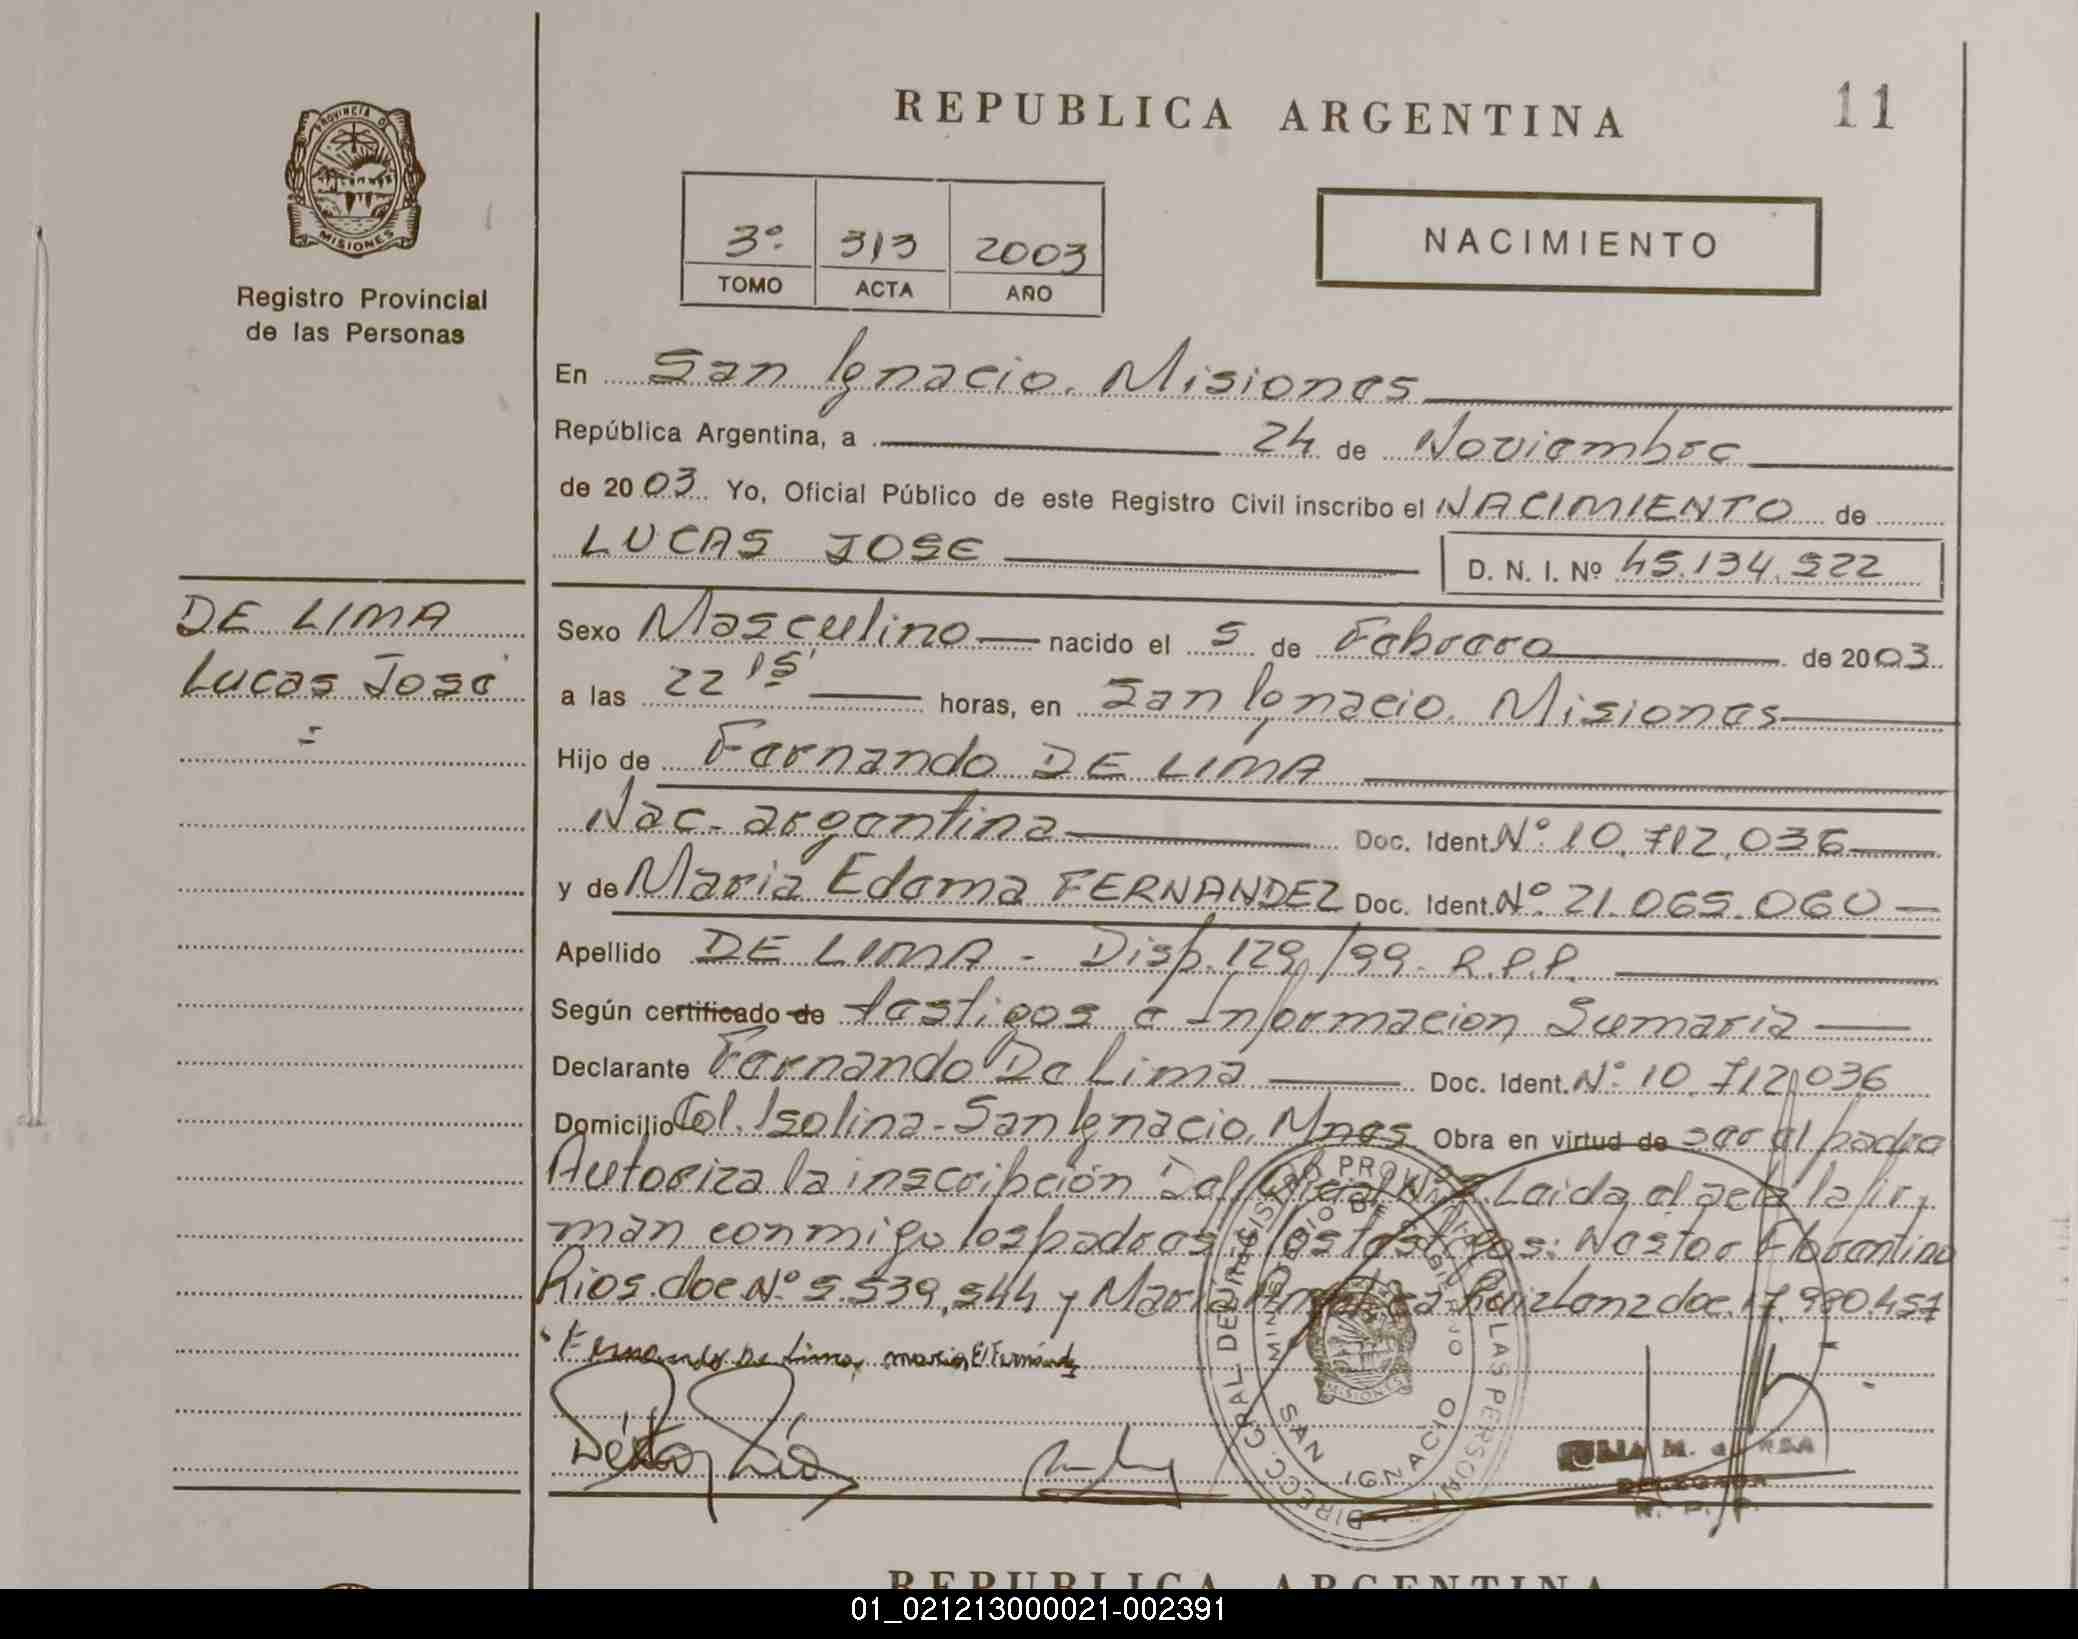 REPUBLICA ARGENTINA
11
PROVINCIA D
MISIONES
Registro Provincial
de las Personas
3º 313 2003
TOMO ACTA AÑO
NACIMIENTO
En San Ignacio. Misiones
República Argentina, a 24 de Noviembre
de 2003 Yo, Oficial Público de este Registro Civil inscribo el NACIMIENTO de
LUCAS JOSE D. N. I. Nº 45.134.522
DE LIMA
Lucas José
=
Sexo Masculino nacido el 5 de Febrero de 2003
a las 22 15' horas, en San Ignacio. Misiones
Hijo de Fernando DE LIMA
Nac. argentina Doc. Ident. Nº 10.712.036
y de Maria Edema FERNANDEZ Doc. Ident. Nº 21.065.060
Apellido DE LIMA - Disp. 129/99. R.P.P.
Según certificado de testigos e Informacion Sumaria
Declarante Fernando De Lima Doc. Ident. Nº 10.712.036
Domicilio Col. Isolina - San Ignacio, Mnes Obra en virtud de ser el padre
Autoriza la inscripción Leida el acta la fir
man conmigo los padres los testigos: Nestor Florentino
Rios. doc Nº 5.539.544 y doc. 17.980.457
Fernando De Lima, maria E. Fernández
Néstor Río
DIRECC. GRAL. DEL REGISTRO PROVINCIAL DE LAS PERSONAS
MINISTERIO DE GOBIERNO
MISIONES
SAN IGNACIO
DELEGADA
R. P. P.
REPUBLICA ARGENTINA
01_021213000021-002391